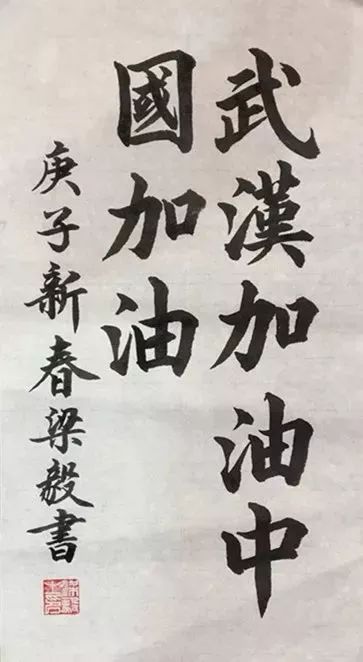 武漢加油中
國加油
庚子新春梁毅書